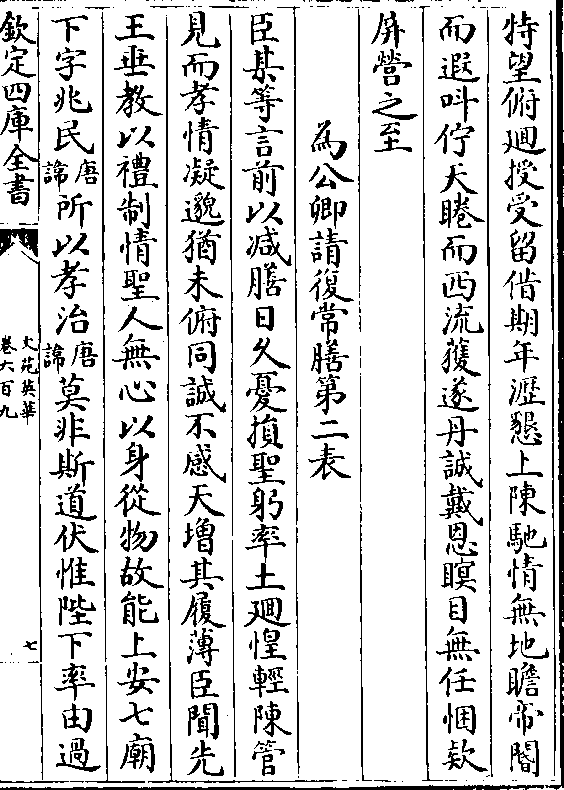 特望俯廻授受留借期年瀝懇上陳馳情無地瞻帝閽
而遐呌佇天睠而西流獲遂丹誠戴恩瞑目無任悃欵
屏營之至
為公卿請復常膳第二表
臣某等言前以减膳日乆憂損聖躬率土廻惶輕陳管
見而孝情凝邈猶未俯同誠不感天増其履薄臣聞先
王垂教以禮制情聖人無心以身從物故能上安七廟
下字兆民唐諱所以孝治唐諱莫非斯道伏惟陛下率由過
欽定四庫全書
文苑英華
卷六百九
七